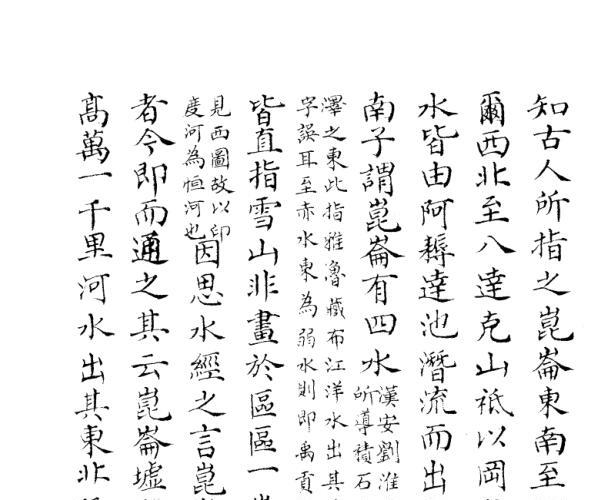 知古人所指之崑崙東南至
爾西北至八達克山祗以岡
水皆由阿耨達池潛流而出
南子謂崑崙有四水
漢安劉淮
所導積石
澤之東此指雅魯藏布江洋水出其
字誤耳至赤水東為弱水則即禹貢
皆直指雪山非畫於區區一
見西圖故以印
度河為恒河也
因思水經之言崑
者今即而通之其云崑崙墟
髙萬一千里河水出其東北